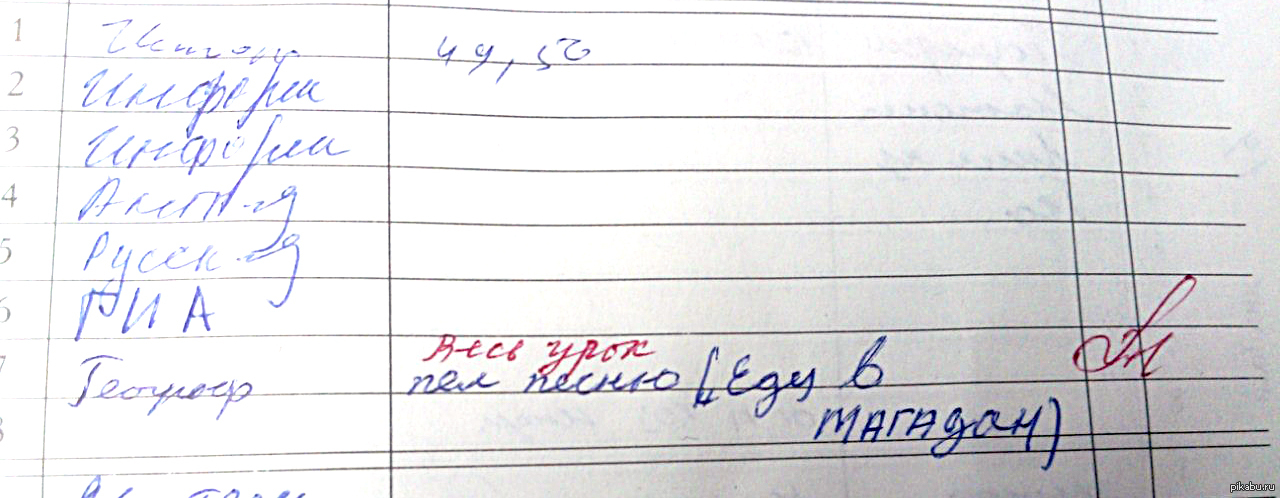 1 Истори 49, 50
2 Информ
3 Информ
4 Англ-я
5 Русск-я
6 ГИА
7 Географ Весь урок
пел песню (Еду в
8 Магадан)
pikabu.ru